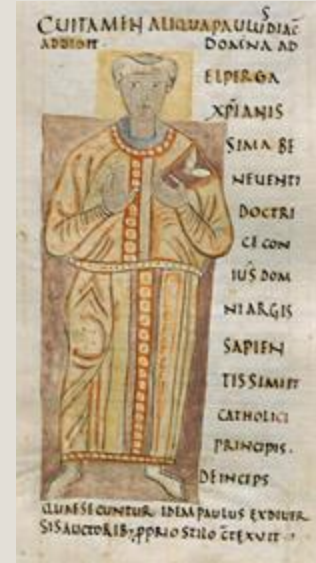 CUITAMEN ALIQUA PAULUS DIAC
ADDIDIT · DOMNA AD
ELPERGA
XPIANIS
SIMA BE
NEUENTI
DOCTRI
CE CON
IUS DOM
NI ARGIS
SAPIEN
TISSIMI ET
CATHOLICI
PRINCIPIS ·
DEINCEPS
QUAE SECUNTUR IDEM PAULUS EX DIUER
SIS AUCTORIB; PPRIO STILO CTEXUIT